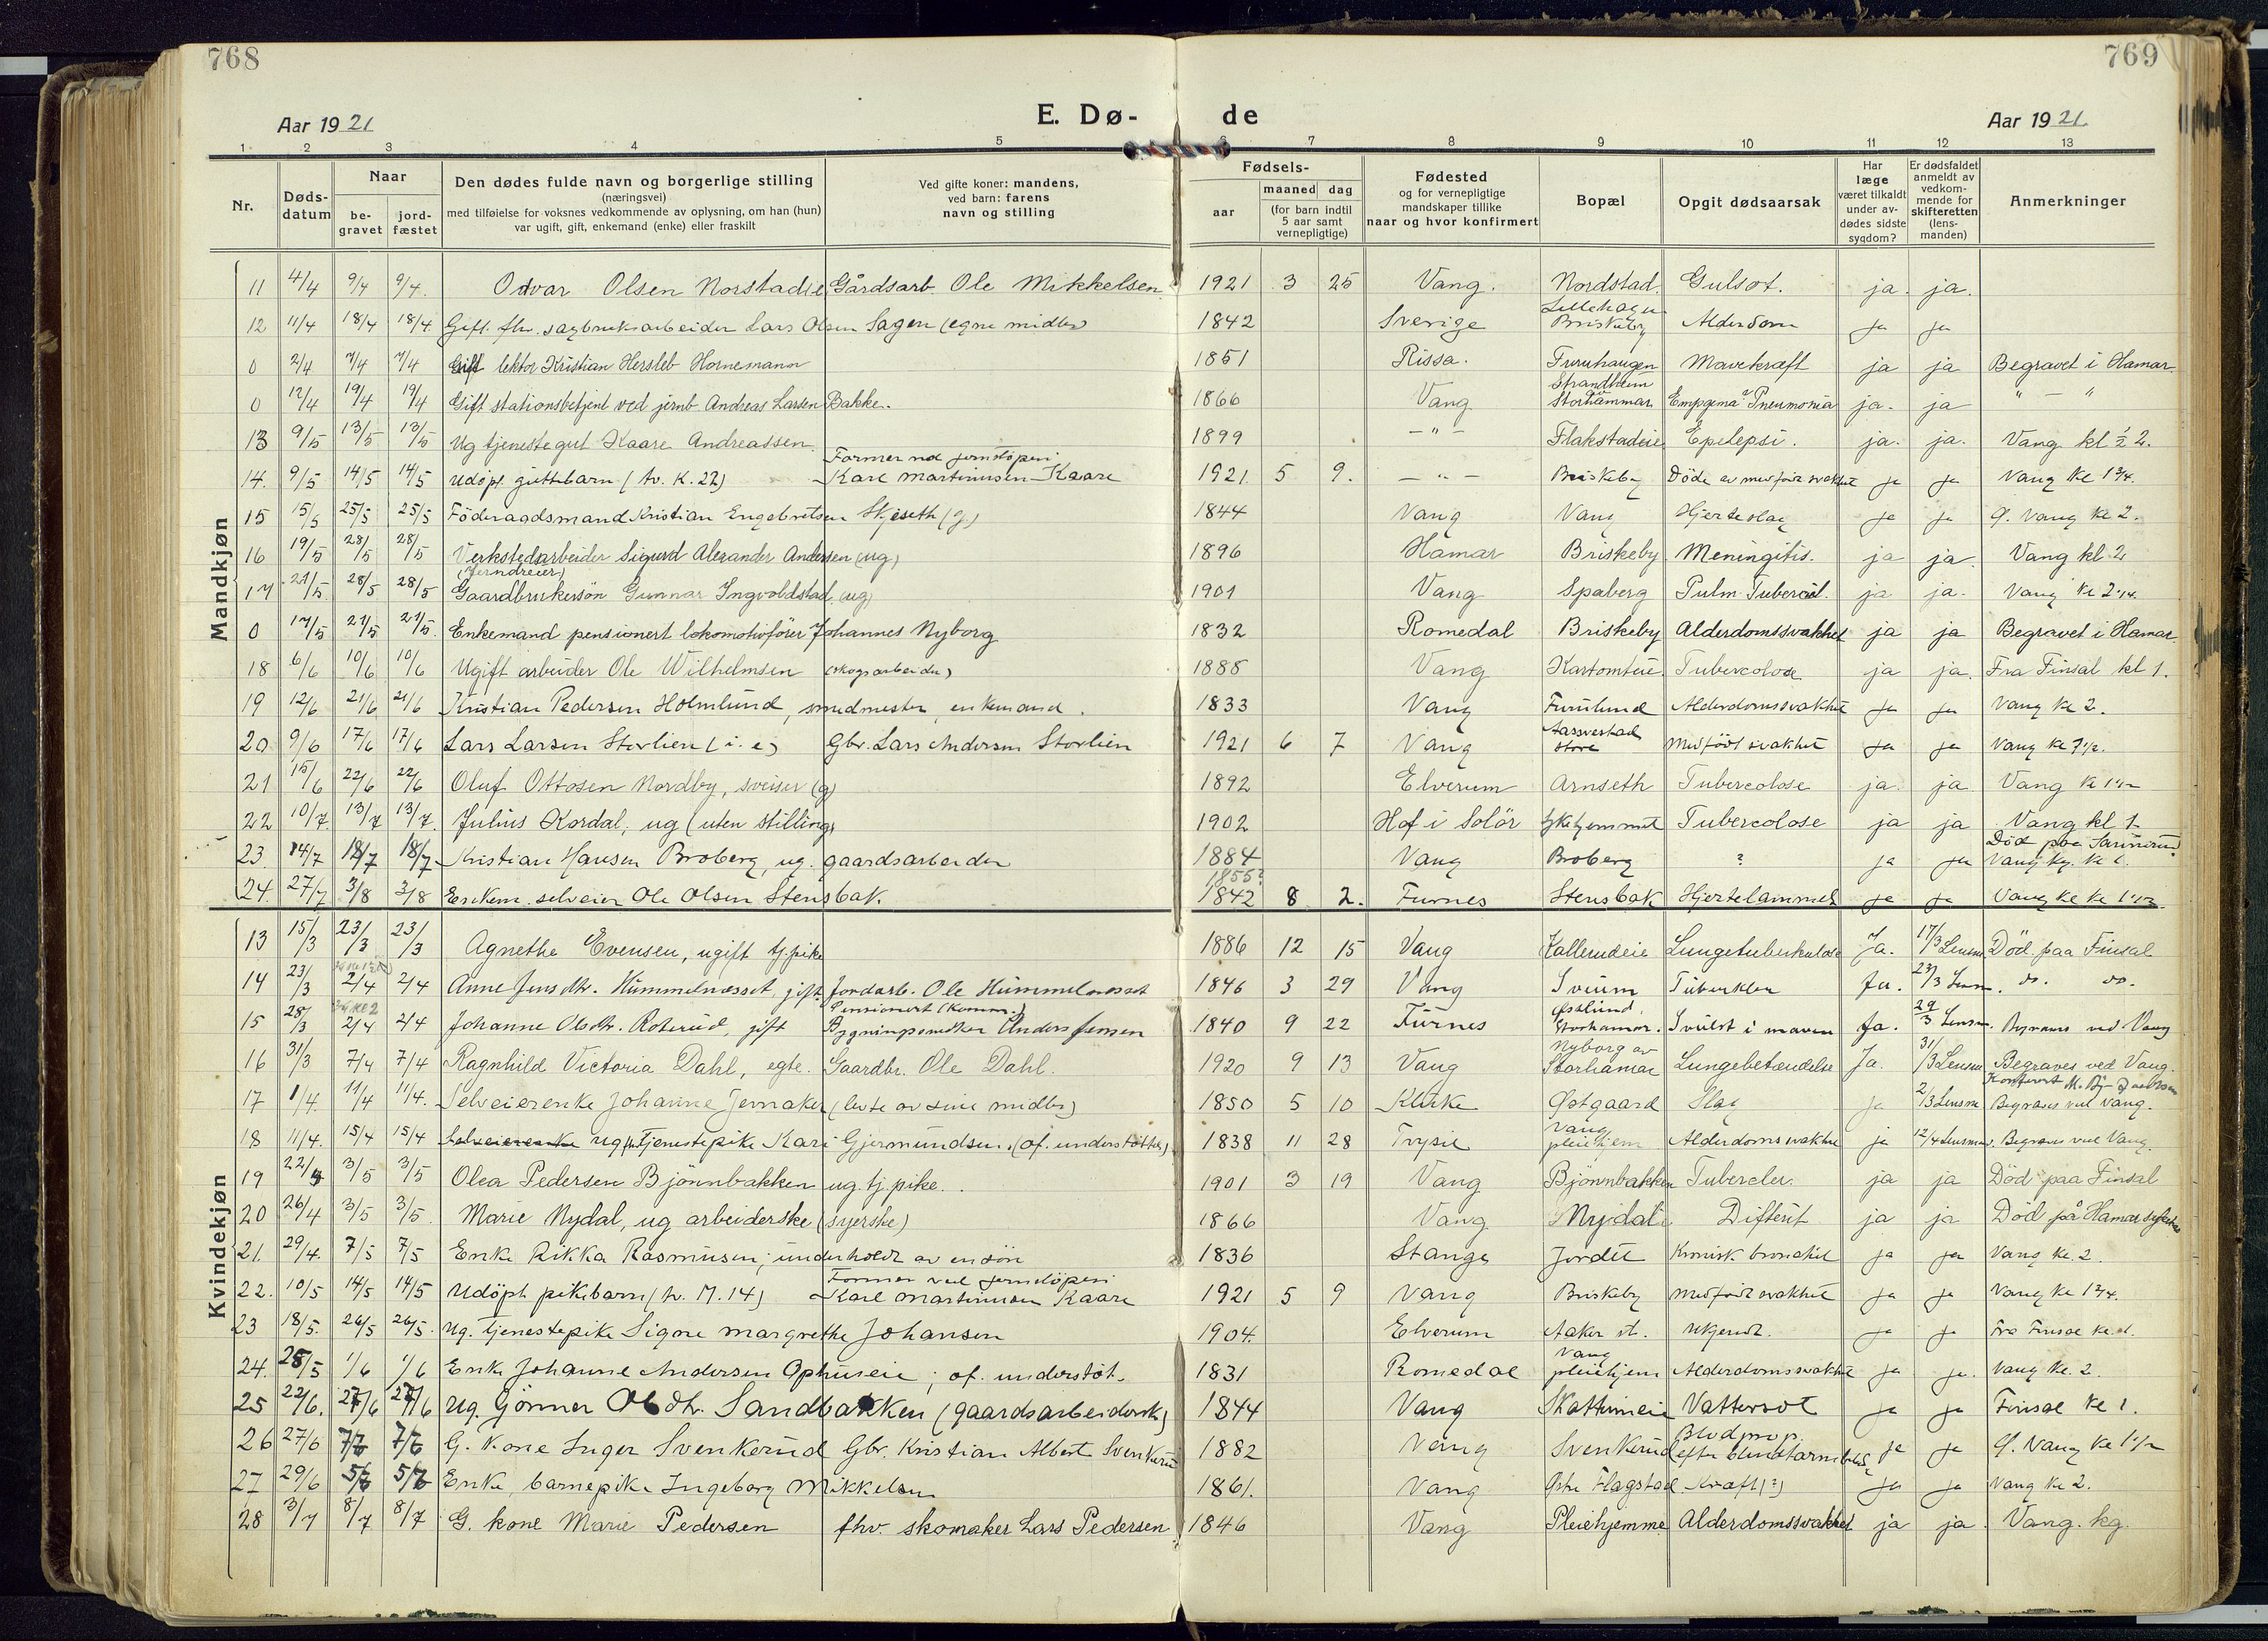 768
769
E. Dø-
de
Aar 1921
Aar 1921.
1 2 3 4 5 6 7 8 9 10 11 12 13
Nr.
Døds-
datum
Naar
be-
gravet
jord-
fæstet
Den dødes fulde navn og borgerlige stilling
(næringsvei)
med tilføielse for voksnes vedkommende av oplysning, om han (hun)
var ugift, gift, enkemand (enke) eller fraskilt
Ved gifte koner: mandens,
ved barn: farens
navn og stilling
Fødsels-
aar
maaned dag
(for barn indtil
5 aar samt
vernepligtige)
Fødested
og for vernepligtige
mandskaper tillike
naar og hvor konfirmert
Bopæl
Opgit dødsaarsak
Har
læge
været tilkaldt
under av-
dødes sidste
sygdom?
Er dødsfaldet
anmeldt av
vedkom-
mende for
skifteretten
(lens-
manden)
Anmerkninger
Mandkjøn
11 4/4 9/4 9/4. Odvar Olsen Norstadie Gårdsarb. Ole Mikkelsen 1921 3 25 Vang. Nordstad. Gulsot. ja. ja.
12 11/4 18/4 18/4 Gift. fhv. sagbruksarbeider Lars Olsen Sagen (egne midler) 1842 Sverige Lillehagen Briskeby Alderdom ja ja
0 2/4 7/4 7/4 Gift lektor Kristian Hersleb Hornemann 1851 Rissa. Furuhaugen Mavekræft ja ja Begravet i Hamar.
0 12/4 19/4 19/4 Gift stationsbetjent ved jernb. Andreas Larsen Bakke. 1866 Vang Strandheim Storhammar Pneumonia ja. ja " — "
13 9/5 13/5 13/5 Ug tjenestegut Kaare Andreassen 1899 — " — Flakstadeie Epelepsi. ja. ja. Vang kl ½ 2.
14. 9/5 14/5 14/5 Udöpt guttebarn (tv. K. 22) Former ved jernstöperi Karl Martinusen Kaare 1921. 5 9. — " — Briskeby Döde av medfödt svakhet ja ja Vang kl 1¾.
15 15/5 25/5 25/5 Föderaadsmand Kristian Engebretsen Skjeseth (g) 1844 Vang Vang Hjerteslag ja ja Vang kl 2.
16 19/5 28/5 28/5 Verkstedsarbeider Sigurd Alexander Andersen (ug) (Jerndreier) 1896 Hamar Briskeby Meningitis. ja ja. Vang kl 2
17 21/5. 28/5 28/5 Gaardbrukersön Gunnar Ingvoldstad (ug) 1901 Vang Spaberg Pulm. Tubercul. ja ja. Vang kl 2¼.
0 17/5 21/5 21/5. Enkemand pensionert lokomotivförer Johannes Nyborg 1832 Romedal Briskeby Alderdomssvakhet ja ja Begravet i Hamar
18 6/6 10/6 10/6 Ugift arbeider Ole Wilhelmsen (skogsarbeider) 1888 Vang Tubercolose ja ja. Fra Finsal kl 1.
19 12/6 21/6 21/6 Kristian Pedersen Holmlund, smedmester, enkemand. 1833 Vang Furulund Alderdomssvakhet ja ja Vang kl 2.
20 9/6 17/6 17/6 Lars Larsen Storlien (i. e) Gbr. Lars Andersen Storlien 1921 6 7 Vang Aassvestad store Medfödt svakhet ja ja Vang kl 7½.
21 15/6 22/6 22/6 Oluf Ottosen Nordby, sveiser (g) 1892 Elverum Arnseth Tubercolose ja ja Vang kl 1½
22 10/7. 13/7 13/7. Julius Kordal, ug (uten stilling) 1902 Hof i Solör sykehjemmet Tubercolose ja ja Vang kl 1.
23 14/7 18/7 18/7 Kristian Hansen Broberg, ug. gaardsarbeider 1884 Vang Broberg ? ja ja Död paa Vang kg. kl 1.
24. 27/7 3/8 3/8 Enkem. selveier Ole Olsen Stensbak. 1855? 1842 8 2. Furnes Stensbak Hjertelammelse ja ja Vang kl 1½.
Kvindekjøn
13 15/3 23/3 23/3 Agnethe Evensen, ugift tj.pike 1886 12 15 Vang Kallerudeie Lungetuberkulose Ja. 17/3 Lensm Död paa Finsal
14 23/3 2/4 2/4 Anne Jensdtr. Hummelnæsset, gift. Jordarb. Ole Hummelnæsset 1846 3 29 Vang Svium Tüberkler Ja. 23/3 Lensm. do. do.
15 28/3 2/4 2/4 Johanne Olsdtr. Roterud, gift Pensionert (komm.) Bygningssnedker Anders Jensen 1840 9 22 Furnes Østlund, Storhamar. Svülst i maven Ja. 29/3 Lensm. Begraves ved Vang
16 31/3 7/4 7/4 Ragnhild Victoria Dahl, egte. Gaardbr. Ole Dahl. 1920 9 13 Vang Nyborg av Storhamar Lungebetændelse Ja. 31/3 Lensm Begraves ved Vang.
17 1/4. 11/4 11/4. Selveierenke Johanne Jernaker (levte av sine midler) 1850 5 10 Østgaard Slag ja 2/3 Lensm Begraves ved Vang.
18 11/4. 15/4 15/4 Selveierenke ug Tjenestepike Kari Gjermundsen. (of. understöttet) 1838 11 28 Trysil Vang pleiehjem Alderdomssvakhet ja 12/4 Lensmn. Begraves ved Vang.
19 22/4 3/5 3/5 Olea Pedersen Bjönnbakken ug. tj. pike. 1901 3 19 Vang Bjönnbakken Tubercler. ja ja Död paa Finsal
20 26/4 3/5 3/5. Marie Nydal, ug arbeiderske (syerske) 1866 Vang Nydal Difterit ja ja Död på Hamar sykehus
21. 29/4. 7/5 7/5 Enke Rikka Rasmusen; underholdt av en sön 1836 Stange Jordet Kronisk bronchit ja ja Vang kl. 2
22. 10/5 14/5 14/5 Udöpt pikebarn (tv. M. 14) Former ved jernstöperi Karl Martinusen Kaare 1921 5 9 Vang Briskeby Medfödt svakhet ja ja Vang kl 1¾.
23 18/5. 26/5 26/5. Ug. tjenestepike Signe Margrethe Johansen 1904. Elverum Aaker st. ukjendt. ja ja Fra Finsal kl. 1.
24. 28/5 1/6 1/6 Enke Johanne Andersen Ophuseie; of. understöt. 1831 Romedal Vang pleiehjem Alderdomssvakhet ja ja. Vang kl. 2.
25 22/6. 27/6 27/6 Ug. Gjönner Olsdtr. Sandbakken (gaardsarbeiderske) 1844 Vang Skattumeie Vattersot ja ja Finsal kl 1.
26 27/6 7/7 7/7 G. kone Inger Svenkerud Gbr. Kristian Albert Svenkerud 1882 Vang Svenkerud Blodprop. efter ja ja Vang kl 1½
27 29/6 5/7 5/7 Enke, barnepike Ingeborg Mikkelsen 1861. Vang Flagstad Kræft (?) ja ja Vang kl 2.
28 3/7 8/7 8/7 G. kone Marie Pedersen fhv. skomaker Lars Pedersen 1846 Vang Pleiehjemmet Alderdomssvakhet ja ja. Vang. kg.